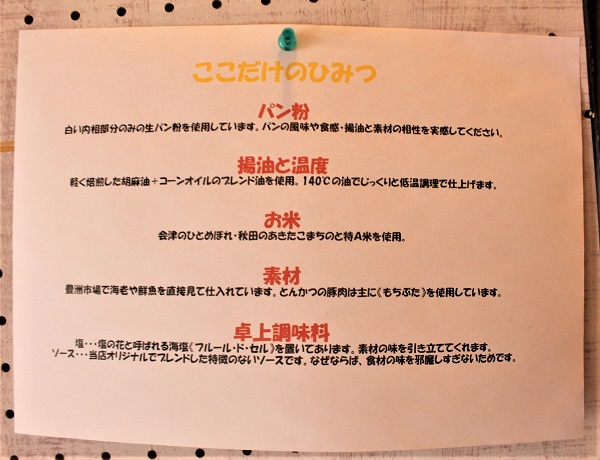 ここだけのひみつ
パン粉
白い内相部分のみの生パン粉を使用しています。パンの風味や食感・揚油と素材の相性を実感してください。
揚油と温度
軽く焙煎した胡麻油＋コーンオイルのブレンド油を使用。140℃の油でじっくりと低温調理で仕上げます。
お米
会津のひとめぼれ・秋田のあきたこまちのと特A米を使用。
素材
豊洲市場で海老や鮮魚を直接見て仕入れています。とんかつの豚肉は主に《もちぶた》を使用しています。
卓上調味料
塩・・・塩の花と呼ばれる海塩《フルール・ド・セル》を置いてあります。素材の味を引き立ててくれます。
ソース・・・当店オリジナルでブレンドした特徴のないソースです。なぜならば、食材の味を邪魔しすぎないためです。